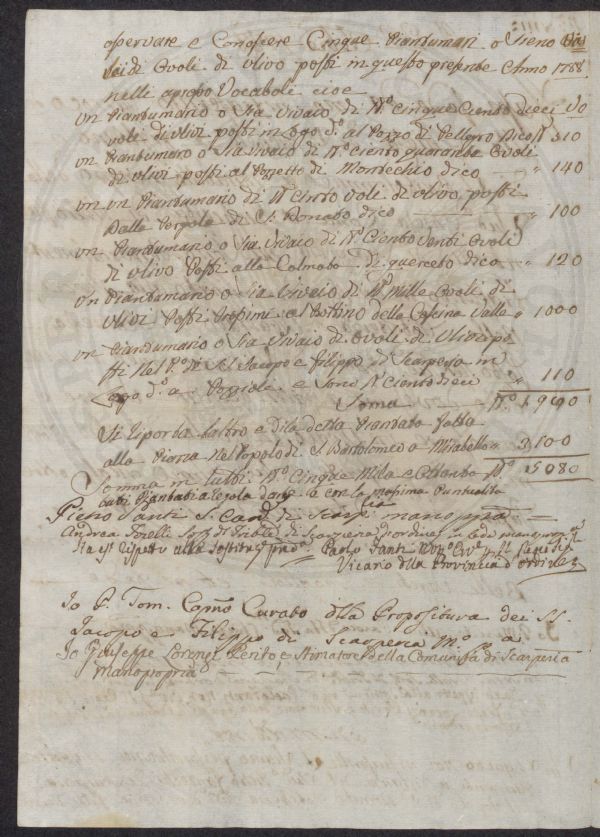 ospervare e Conoscere Cinque Piantumari o sieno
di Ovoli di Ulivo posti in questo presente Anno 1788
nelli apropo Vocaboli cioe
un Piantumario o sia vivaio di N.o cinque Ciento dieci Uo
voli di ulivi posti in Logo d.o al Pozzo di Pellegro Dico N 510
un Piantumaro o sia vivaio di N.o ciento quaranta Ovoli
di ulivi posti al Pozzetto di Montecchio dico — " 140
un un Piantumario di N cinto voli di olivo posti
Dalle Pergole di S. Donato dico — " 100
un Piantumario o sia Vivaio di N.o Ciento venti Ovoli
di ulivo Posti alla Colmata di querceto dico — " 120
un Piantumario o sia Vivaio di N.o Mille Ovoli di
ulivi Posti Propimi al Bottino della Cascina Valle " 1000
un Piantumario o sia Vivaio di Ovoli di Ulivi po
sti Nel P.o di SS Jacopo e Filippo di Scarperia in
Logo d.o a Poggiole e sono N Ciento dieci " 110
Soma — N.o 1980
Si riporta laltro e dila detta Piantata fatta
alla Piazza Nel Popolo di S. Bartolomeo a Mirabello " 3100
Somma in tutti N.o Cinque Mila e Ottanta N.o 5080
tutti Piantati a regola d'arte e con la propima Puntualita
Pietro Santi mano ppria
Andrea Torelli di Scarperia in fede mano
Paolo Santi
Vicario dlla Provincia
Io P. Tom. Capno Curato dlla Propositura dei SS.
Jacopo e Filippo di Scarperia M.o p.a
Io Giuseppe Lorenzi Perito e Stimatore della Comunità di Scarperia
Manopropria